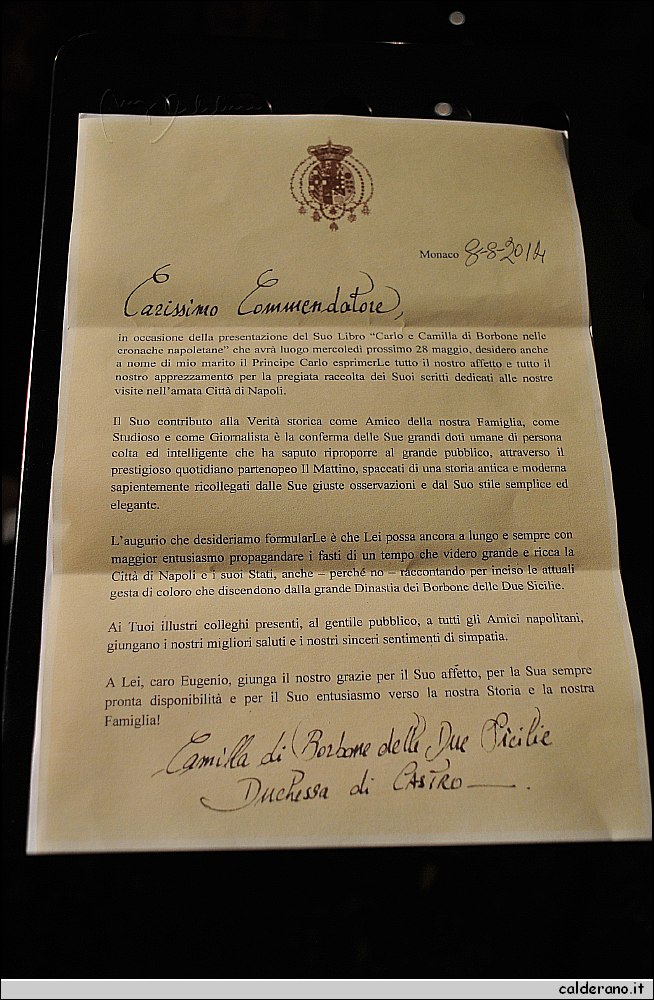 Monaco 8-8-2014
Carissimo Commendatore,
in occasione della presentazione del Suo Libro “Carlo e Camilla di Borbone nelle
cronache napoletane” che avrà luogo mercoledì prossimo 28 maggio, desidero anche
a nome di mio marito il Principe Carlo esprimerLe tutto il nostro affetto e tutto il
nostro apprezzamento per la pregiata raccolta dei Suoi scritti dedicati alle nostre
visite nell’amata Città di Napoli.
Il Suo contributo alla Verità storica come Amico della nostra Famiglia, come
Studioso e come Giornalista è la conferma delle Sue grandi doti umane di persona
colta ed intelligente che ha saputo riproporre al grande pubblico, attraverso il
prestigioso quotidiano partenopeo Il Mattino, spaccati di una storia antica e moderna
sapientemente ricollegati dalle Sue giuste osservazioni e dal Suo stile semplice ed
elegante.
L’augurio che desideriamo formularLe è che Lei possa ancora a lungo e sempre con
maggior entusiasmo propagandare i fasti di un tempo che videro grande e ricca la
Città di Napoli e i suoi Stati, anche – perché no – raccontando per inciso le attuali
gesta di coloro che discendono dalla grande Dinastia dei Borbone delle Due Sicilie.
Ai Tuoi illustri colleghi presenti, al gentile pubblico, a tutti gli Amici napolitani,
giungano i nostri migliori saluti e i nostri sinceri sentimenti di simpatia.
A Lei, caro Eugenio, giunga il nostro grazie per il Suo affetto, per la Sua sempre
pronta disponibilità e per il Suo entusiasmo verso la nostra Storia e la nostra
Famiglia!
Camilla di Borbone delle Due Sicilie
Duchessa di CASTRO
calderano.it